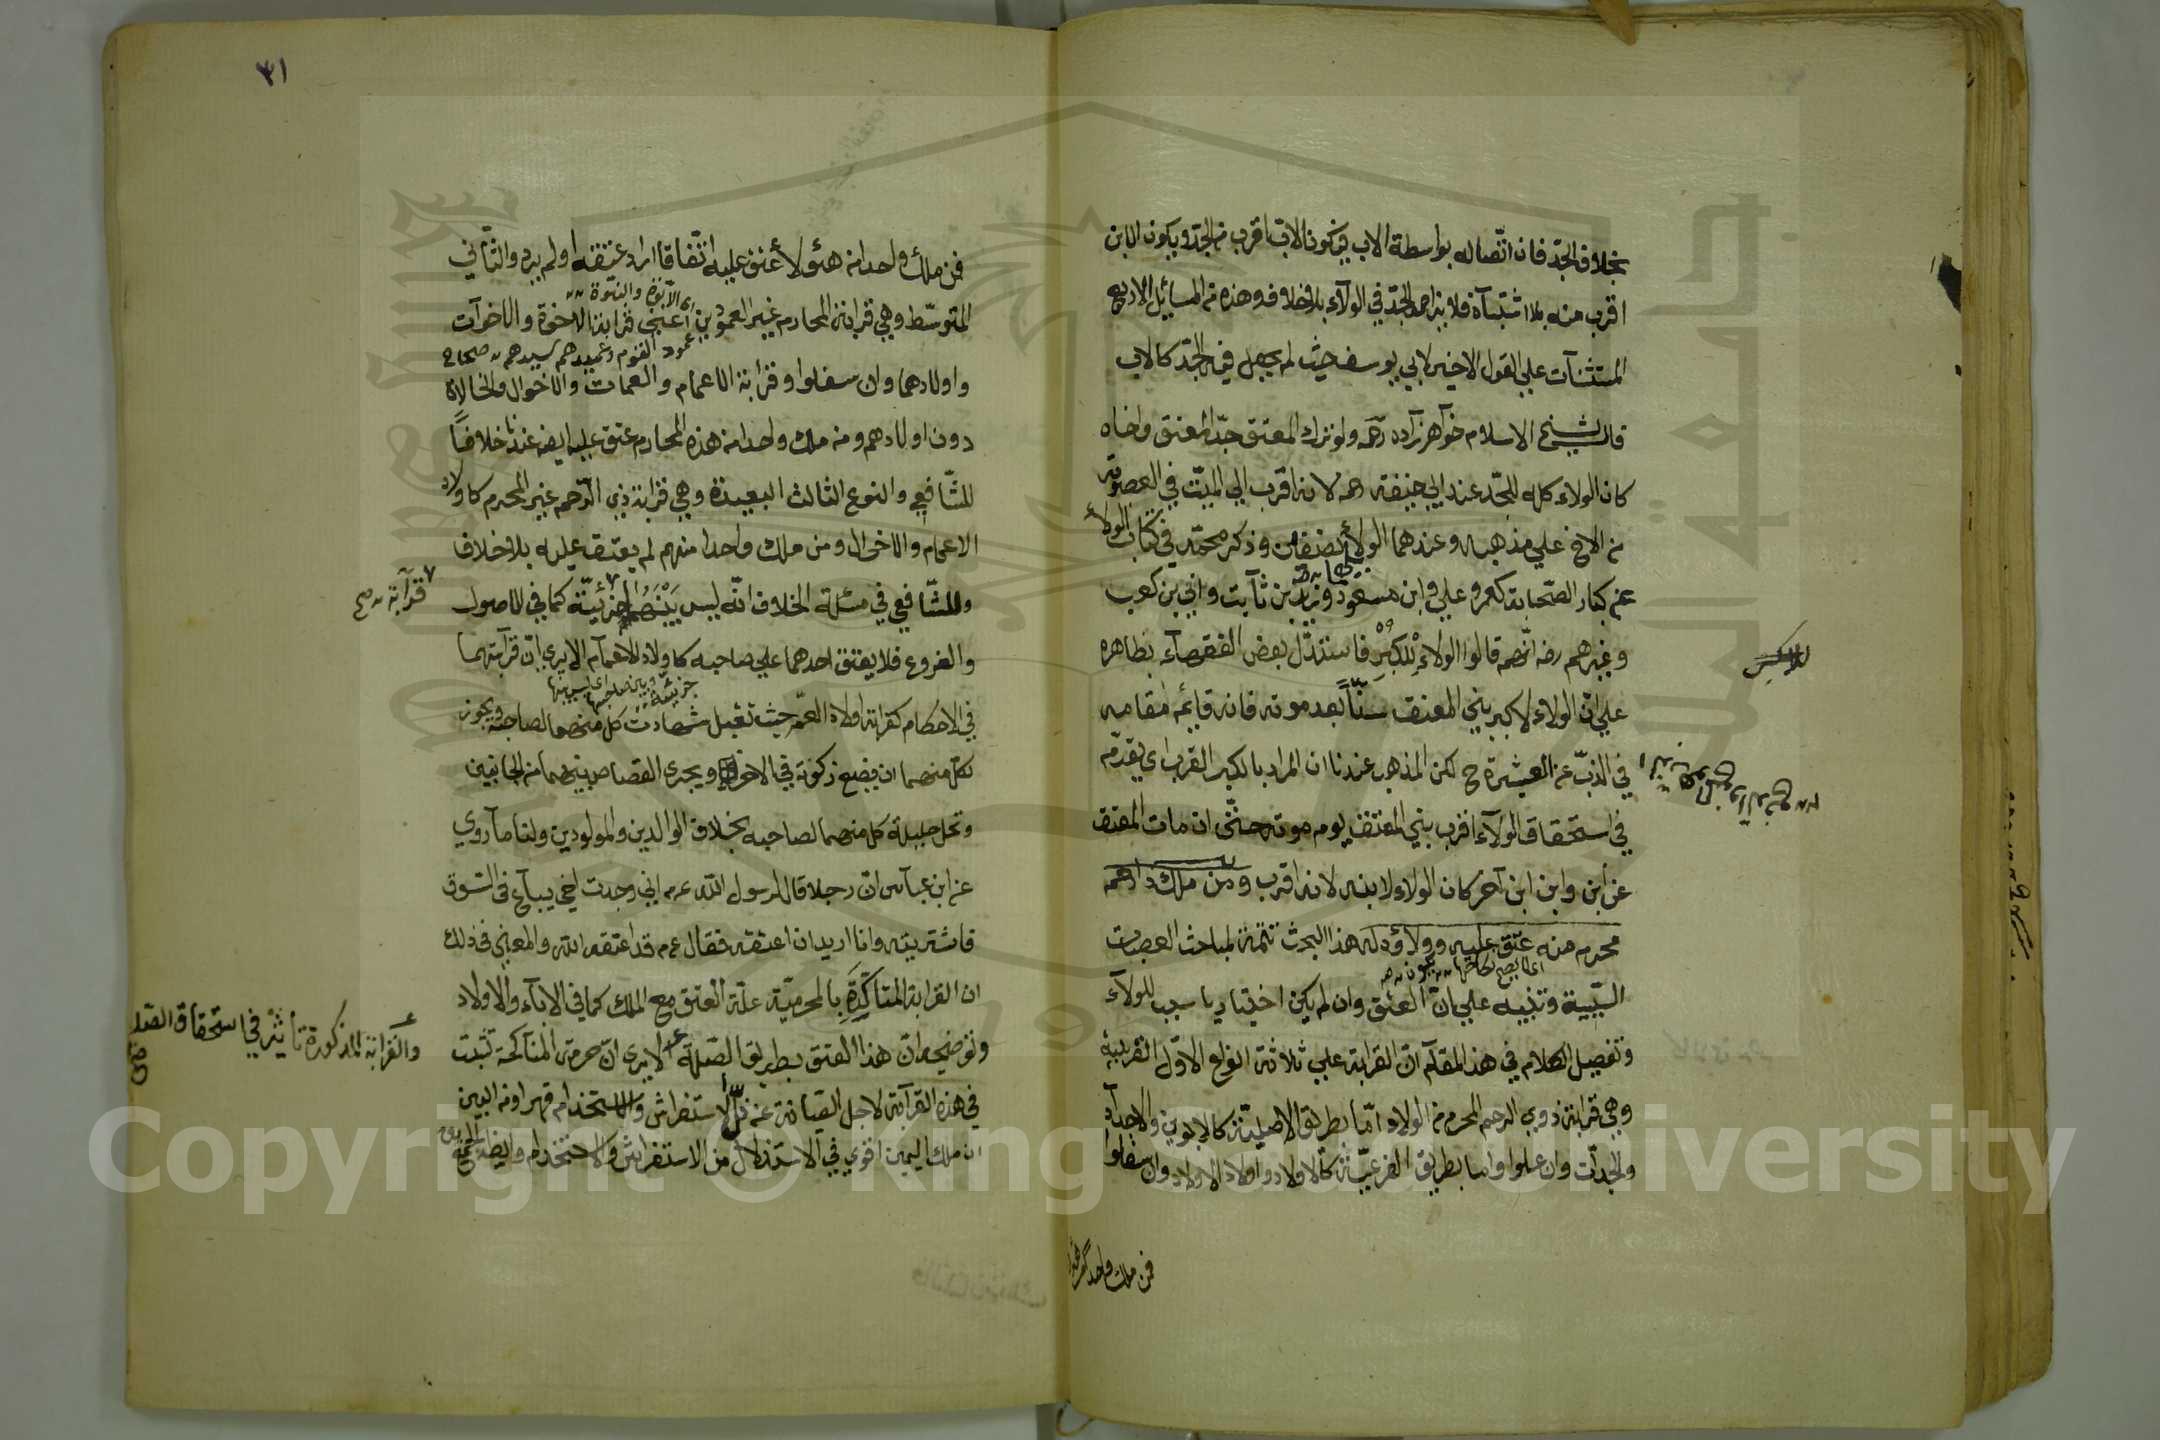 بخلاف الجدّ فان اتّصاله بواسطة الاب فيكون الابّ اقرب من الجدّ ويكون الابن
اقرب منه بلا اشتباه فلا يزاحم الجدّ في الولاء بلا خلاف وهذه من المسائل الاربع
المستثنات علي القول الاخير لابي يوسف حيث لم يجعل فيه الجدّ كالاب
قال شيخ الاسلام خواهرزاده رحمه ولو ترك المعتق جدّ المعتق واخاه
كان الولاء كله للجدّ عند ابي حنيفة رحمه لانه اقرب الي الميّت في العصوبة
من الاخ علي مذهبه وعندهما الولاء نصفان وذكر محمّد في كتاب الولاء
عن كبار الصّحابة كعمر وعلي وابن مسعود وزيد بن ثابت وابي بن كعب
وغيرهم رضه انّهم قالوا الولاء للكبر فاستدلّ بعض الفقهاء بظاهره
علي انّ الولاء لاكبر بني المعتق سنّاً بعد موته فانه قائم مقامه
في الذبّ عن العشيرة ح لكن المذهب عندنا ان المراد بالكبر القرب اي يقدّم
في استحقاق الولاء اقرب بني المعتق يوم موته حتّي ان مات المعتق
عن ابن وابن ابن آخر كان الولاء لابنه لانه اقرب ومن ملك ذا رحم
محرم منه عتق عليه وولاؤه له هذا البحث تتمة لمباحث العصبات
السّببية وتنبيه علي انّ العتق وان لم يكن اختياريا سبب للولاء
وتفصيل الكلام في هذا المقام انّ القرابة علي ثلاثة انواع الاوّل القريبة
وهي قرابة ذوي الرحم المحرم من الولاد امّا بطريق الاصليّة كالابوين والاجداد
والجدّات وان علوا واما بطريق الفرعيّة كالاولاد واولاد الاولاد وان سفلوا
فمن ملك واحدا
٣١
فمن ملك واحدا من هؤلاء عتق عليه اتّفاقا اراد عتقه او لم يرد والثّاني
اي الابوّة والبنوّة
المتوسّط وهي قرابة المحارم غير العمودين اعني قرابة الاخوة والاخوات
عمود القوم وعميدهم سيدهم صحاح
واولادهما وان سفلوا وقرابة الاعمام والعمات والاخوال والخالات
دون اولادهم ومن ملك واحدا من هذه المحارم عتق عليه ايضه عندنا خلافاً
للشّافعي والنوع الثالث البعيدة وهي قرابة ذي الرّحم غير المحرم كاولاد
الاعمام والاخوال ومن ملك واحدا منهم لم يعتق عليه بلا خلاف
وللشّافعي في مسئلة الخلاف انّه ليس بينهما جزئيّة كما في الاصول
قرابة صح
والفروع فلا يعتق احدهما علي صاحبه كاولاد الاعمام الا يري انّ قرابتهما
في الاحكام كقرابة اولاد العمّ حيث تقبل شهادت كل منهما لصاحبه ويجوز
لكل منهما ان يضع زكوته في الاخر ويجري القصاص بينهما من الجانبين
وتحل حليلة كل منهما لصاحبه بخلاف الوالدين والمولودين ولنا ما روي
عن ابن عباس انّ رجلا قال لرسول اللّه عم اني وجدت اخي يباع في السّوق
فاشتريته وانا اريد ان اعتقه فقال عم قد اعتقه اللّه والمعني في ذلك
ان القرابة المتأكّدة بالمحرميّة علّة العتق مع الملك كما في الاباء والاولاد
والقرابة المذكورة تأثير في استحقاق الصّلة صح
وتوضيحه انّ هذا العتق بطريق الصّلة الا يري انّ حرمة المناكحة تثبت
في هذه القرابة لاجل الصّيانة عن ذلّ الاستفراش والاستخدام قهرا ومن البين
ان ملك اليمين اقوي في الاستذلال من الاستفراش والاستخدام وايضا